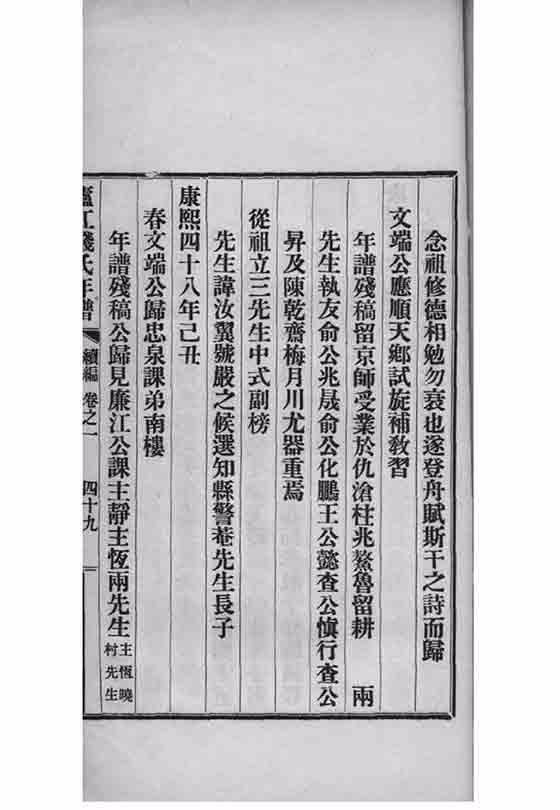 念祖修德相勉勿衰也遂登舟賦斯干之詩而歸
文端公應順天鄉試旋補教習
年譜殘稿留京師受業於仇滄柱兆鰲魯留耕　兩
先生執友俞公兆晟俞公化鵬王公懿查公慎行查公
昇及陳乾齋梅月川尤器重焉
從祖立三先生中式副榜
先生諱汝翼號嚴之候選知縣警菴先生長子
康熙四十八年己丑
春文端公歸忠泉課弟南樓
年譜殘稿公歸見廉江公課主靜主恆兩先生主恆曉村先生
廬江錢氏年譜　續編　卷之一　四十九